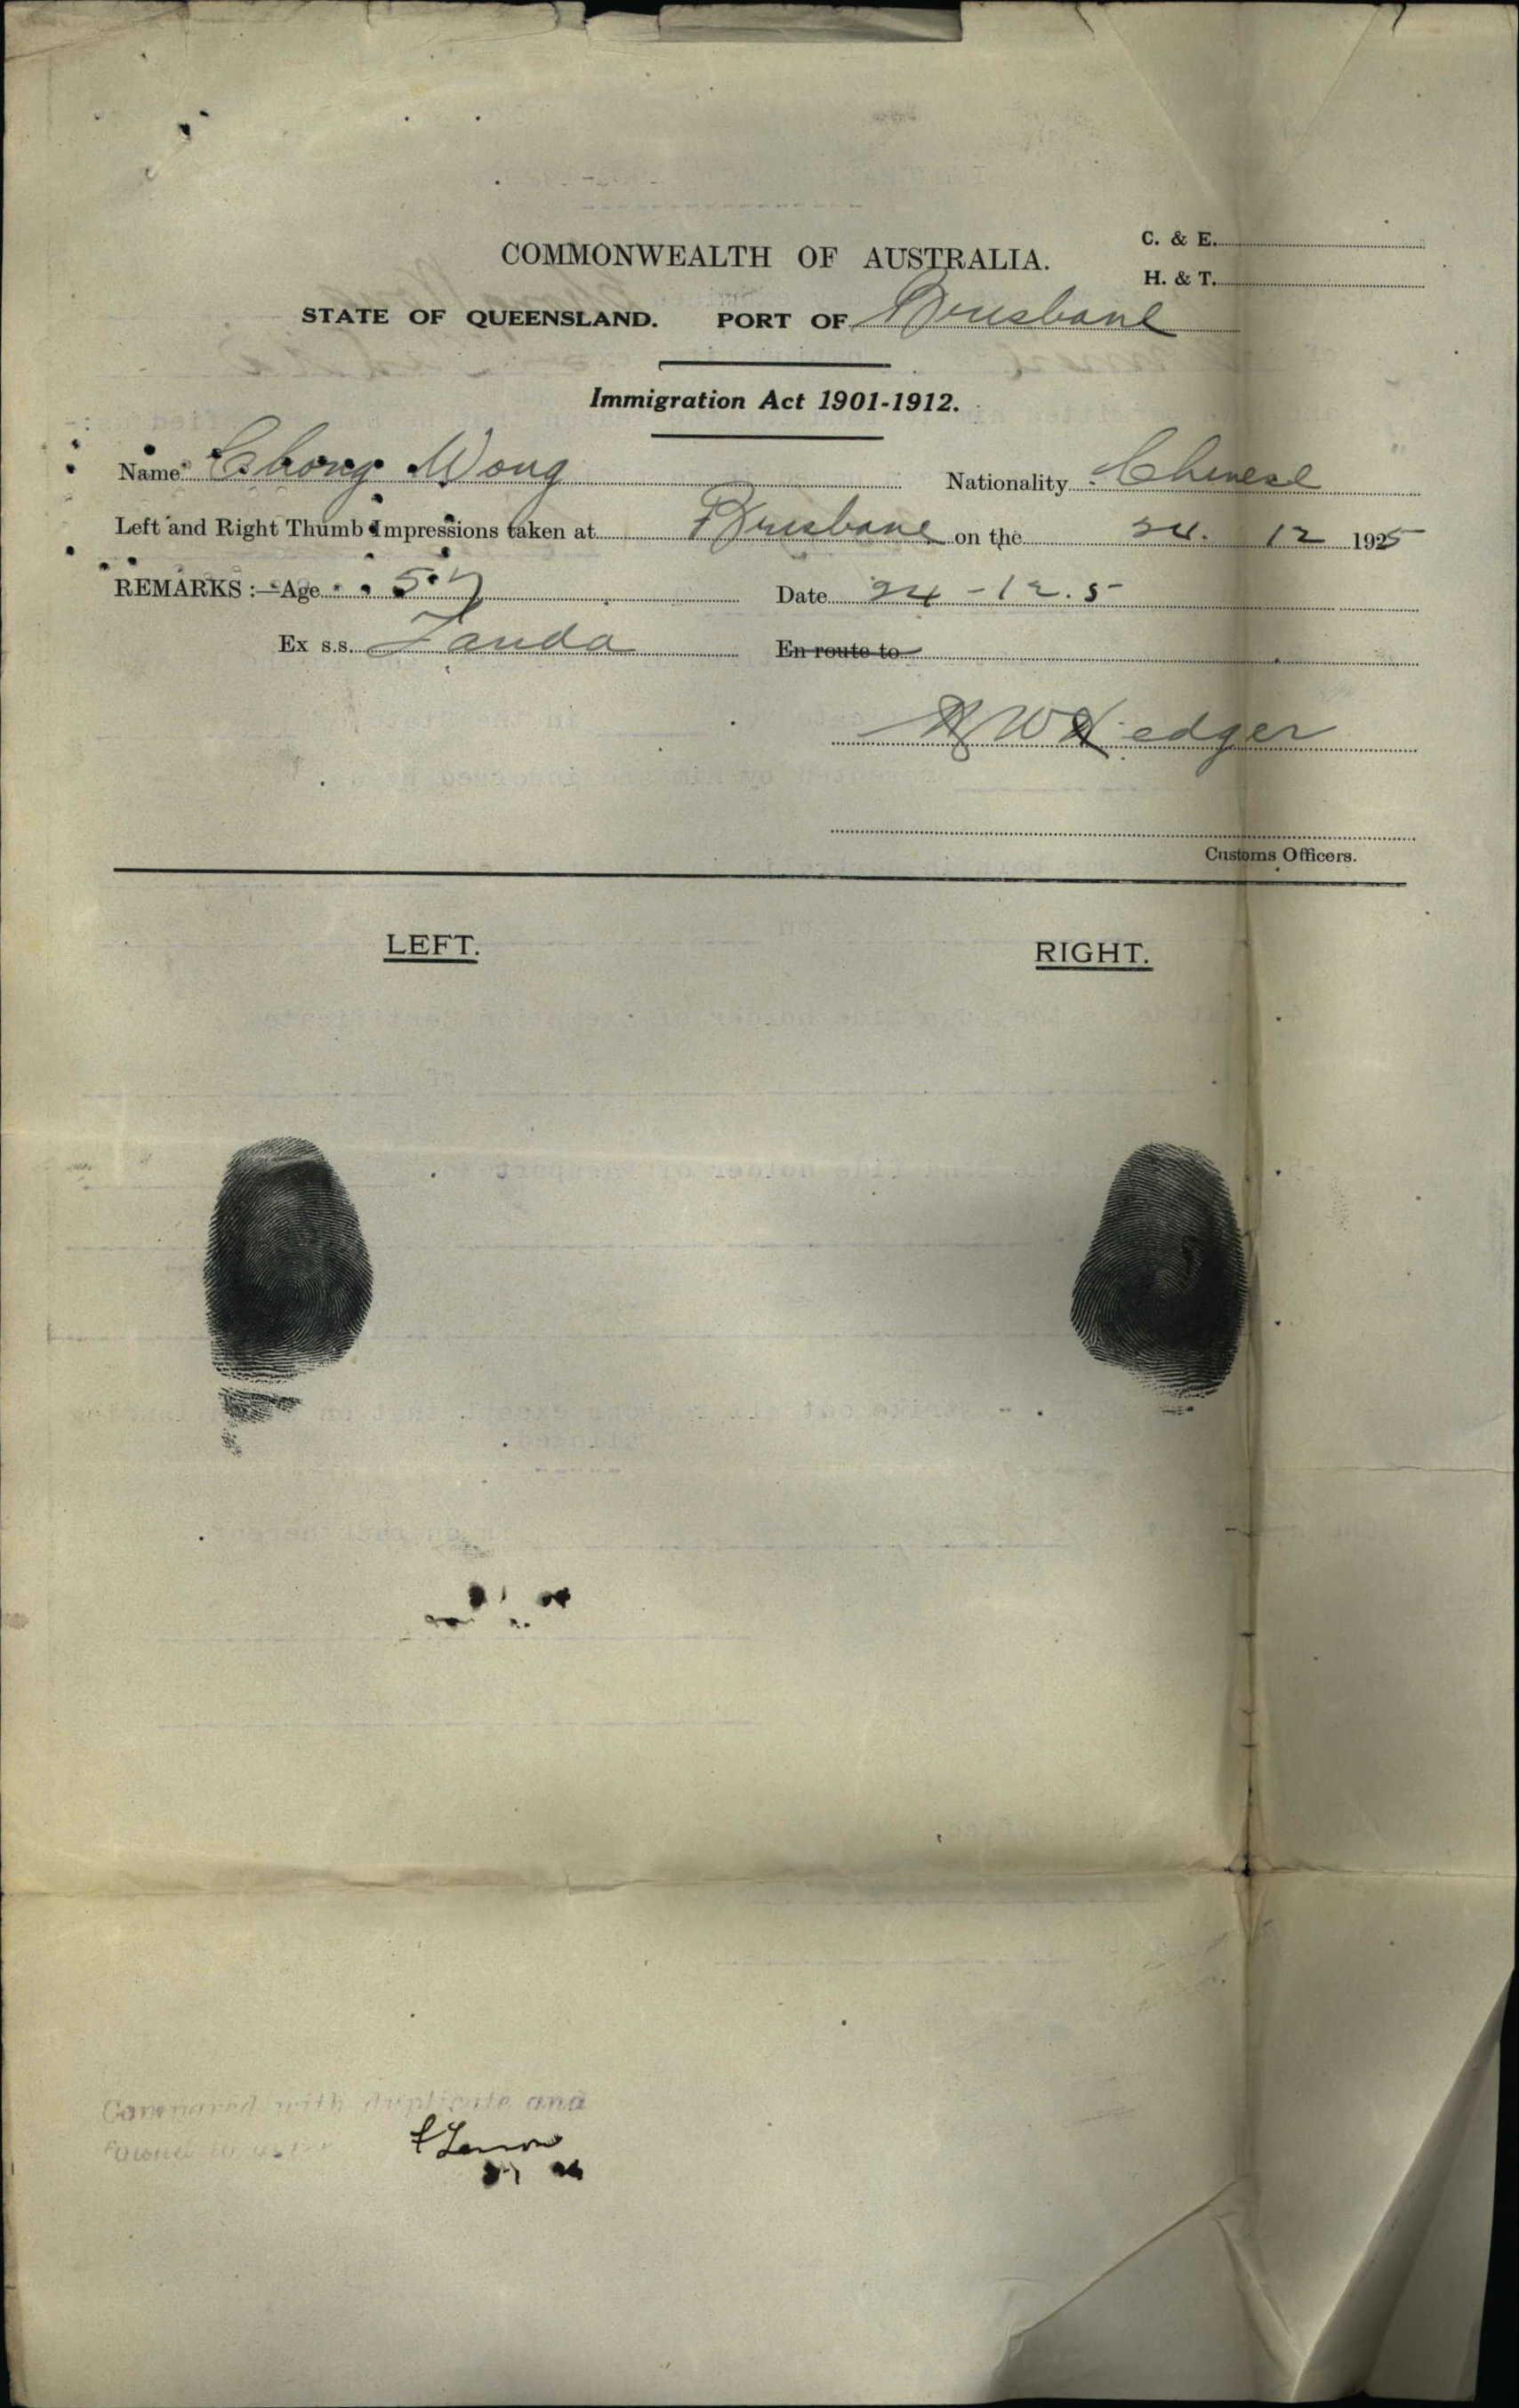 C. & E.
COMMONWEALTH OF AUSTRALIA.
H. & T.
STATE OF QUEENSLAND. PORT OF Brisbane
Immigration Act 1901-1912.
Name Chong Wong Nationality Chinese
Left and Right Thumb Impressions taken at Brisbane on the 24. 12 1925
REMARKS :—Age 57 Date 24-12.5
Ex s.s. Tanda En route to
Hedger
Customs Officers.
LEFT. RIGHT.
Compared with duplicate and
found to